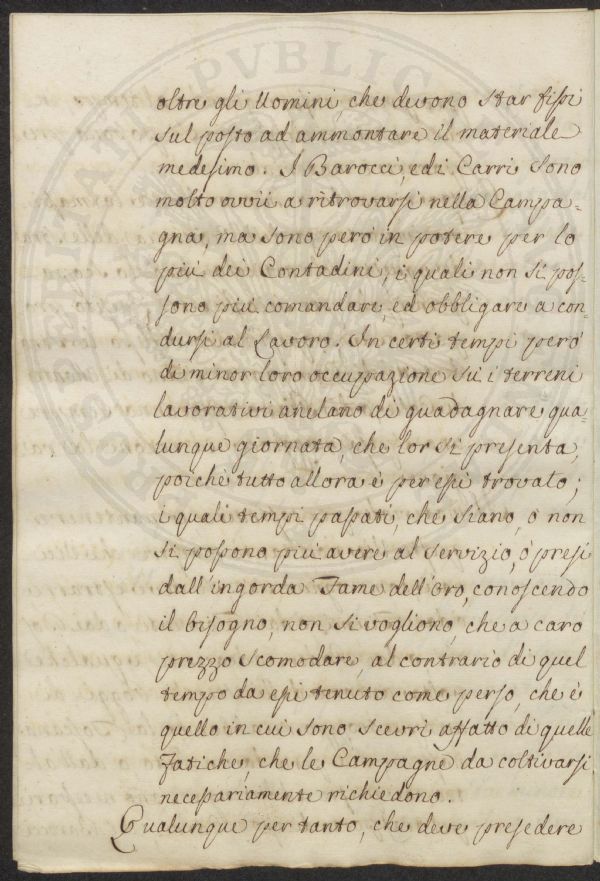 oltre gli Uomini, che devono star fissi
sul posto ad ammontare il materiale
medesimo. I Barocci, ed i Carri sono
molto ovvii a ritrovarsi nella Campa=
gna, ma sono però in potere per lo
più dei Contadini, i quali non si pos=
sono più comandare, ed obbligare a con=
dursi al Lavoro. In certi tempi però
di minor loro occupazione su i terreni
lavorativi anelano di guadagnare qua=
lunque giornata, che lor si presenta,
poiché tutto allora è per essi trovato;
i quali tempi passati, che siano, o non
si possono più avere al servizio, o presi
dall'ingorda Fame dell'Oro, conoscendo
il bisogno, non si vogliono, che a caro
prezzo scomodare, al contrario di quel
tempo da essi tenuto come perso, che è
quello in cui sono scevri affatto di quelle
Fatiche, che le Campagne da coltivarsi
necessariamente richiedono.
Qualunque per tanto, che deve presedere